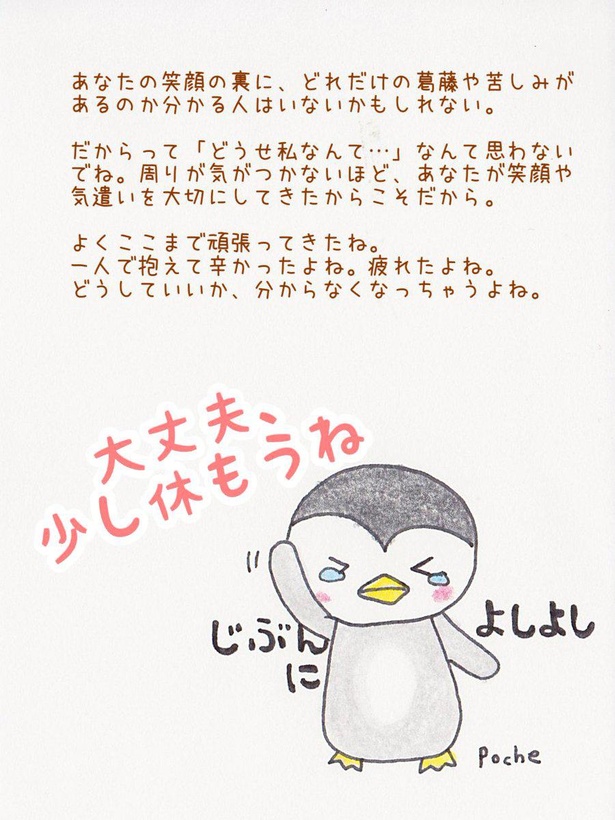 あなたの笑顔の裏に、どれだけの葛藤や苦しみが
あるのか分かる人はいないかもしれない。
だからって「どうせ私なんて…」なんて思わない
でね。周りが気がつかないほど、あなたが笑顔や
気遣いを大切にしてきたからこそだから。
よくここまで頑張ってきたね。
一人で抱えて辛かったよね。疲れたよね。
どうしていいか、分からなくなっちゃうよね。
大丈夫、
少し休もうね
じぶん
に
よしよし
Poche